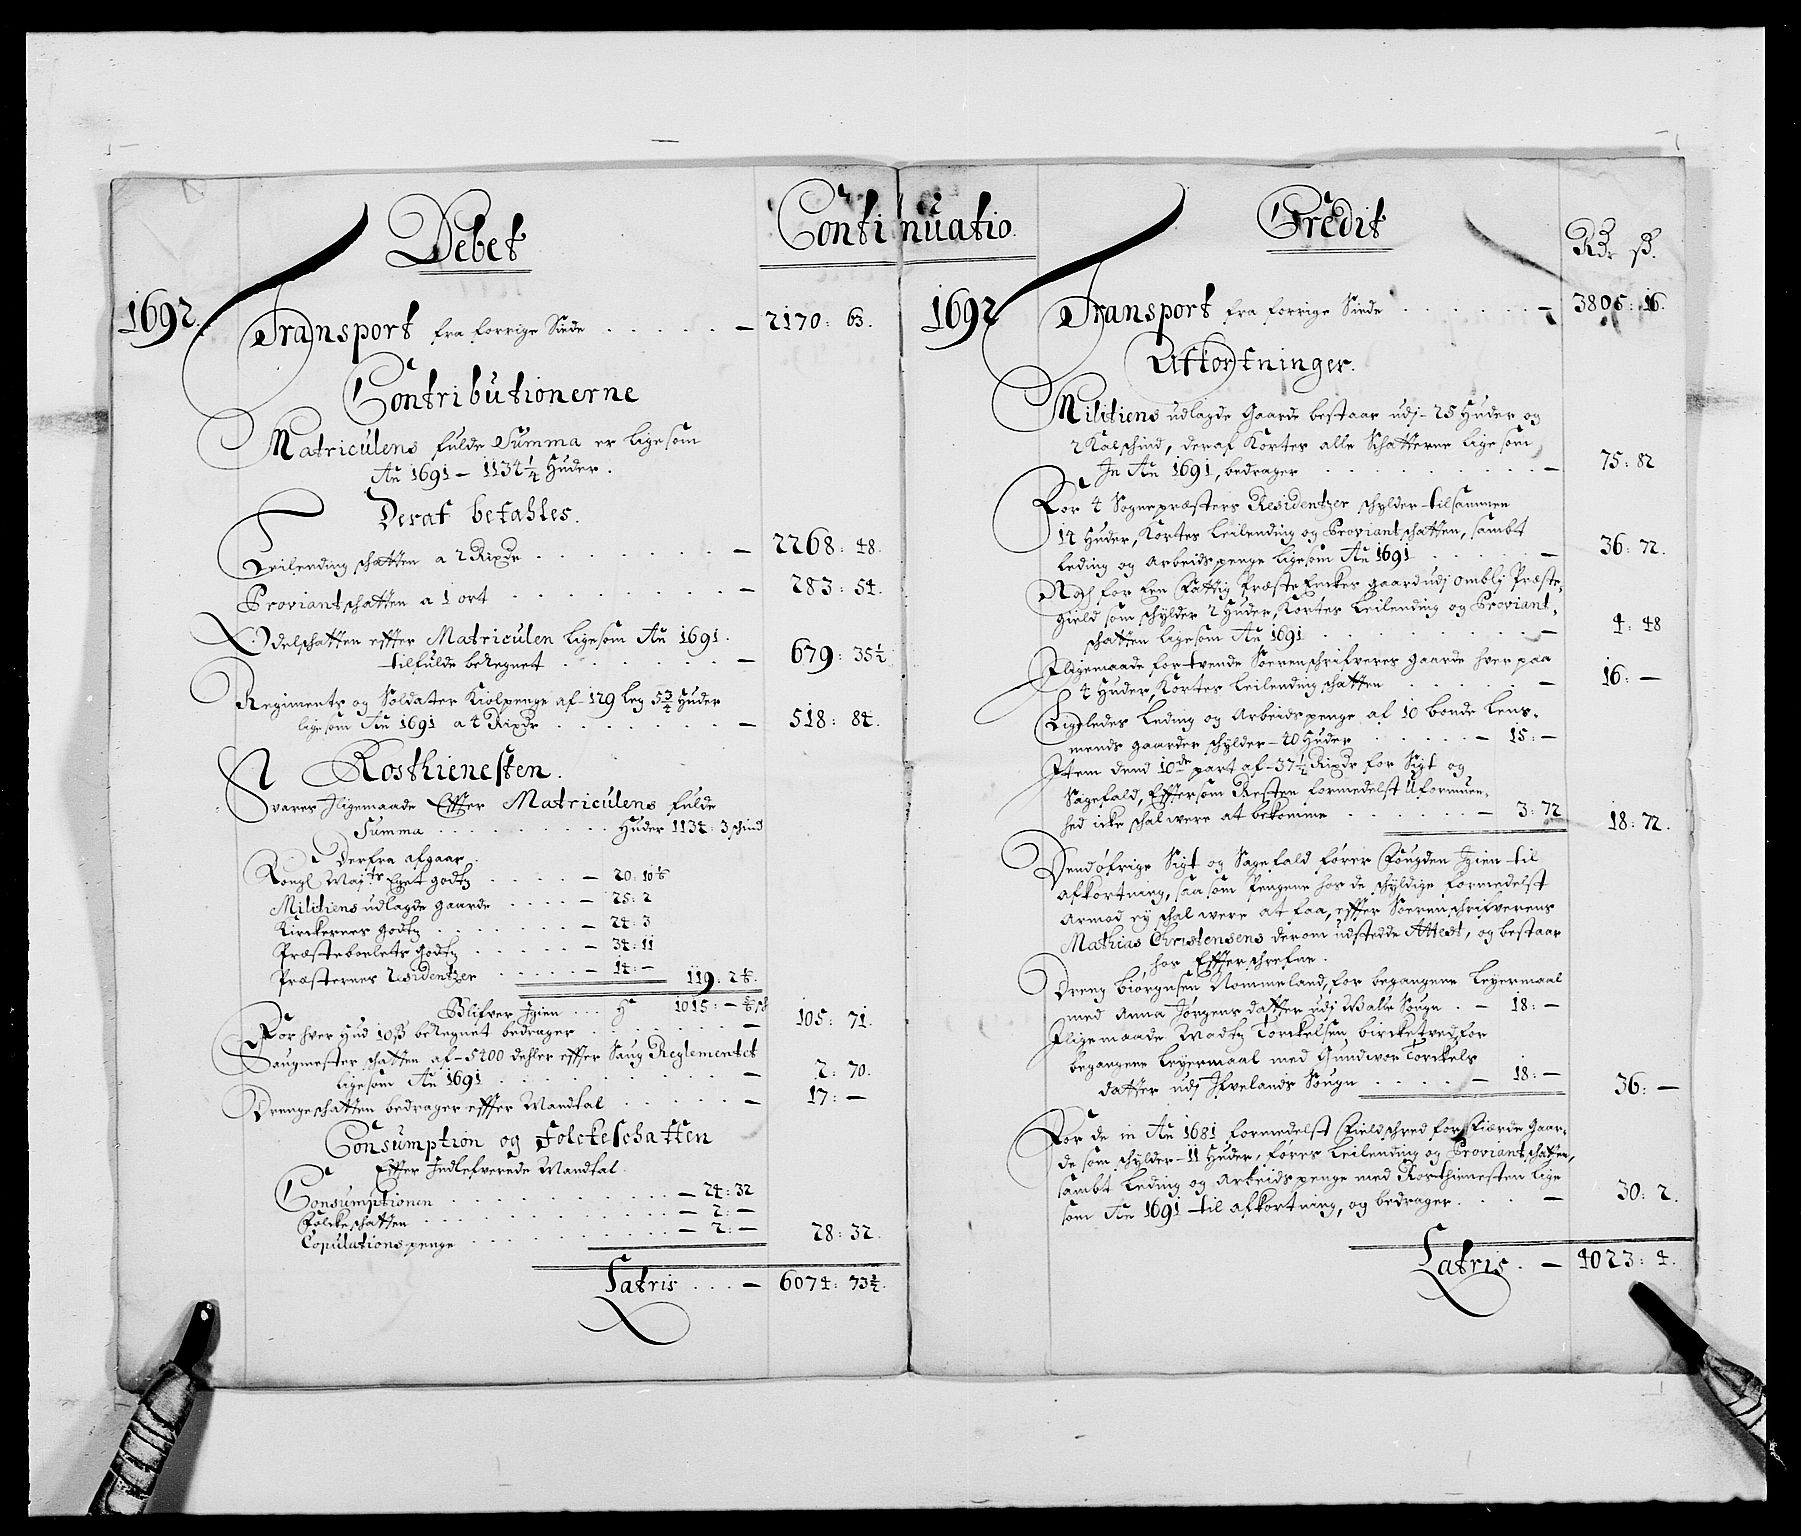 Debet
Continuatio
1692.
Transport fra forrige Siede . . . . . — 2170: 63.
Contributionerne
Matriculens fulde Summa er ligesom
Aũ 1691 — 1134 1/4 Huder.
Deraf betahles.
Leilending schatten a 2 Rixdr . . . . . — 2268: 48.
Proviant schatten a 1 ort . . . . . — 283: 54.
Odelschatten effter Matriculen ligesom Aũ 1691.
tilfulde beregnet . . . . . — 679: 35 1/2
Regiments og Soldater Kiolpenge af 129 leg 5 3/4 Huder
ligesom Aũ 1691 a 4 Rixdr . . . . . — 518: 84.
Rosthienesten.
Svarer Iligemaade Effter Matriculens fulde
Summa . . . . . Huder 1134: 3 schind
Derfra afgaar.
Kongl Mayts Eget godtz . . . . — 20: 10
Militiens udlagde gaarde . . . . — 25: 2
Kirckernes godtz . . . . — 24: 3
Præsteboelets godtz . . . . — 34: 11
Præsternes Residentzer . . . . — 14: — 119: 2
Blifver Igien . . . Hr 1015: —
For hver Hud 10 ß beregnet bedrager . . . . . — 105: 71.
Saugmester schatten af 5400 dehler effter Saug Reglementet
ligesom Aũ 1691 . . . . . — 2: 70.
Drengeschatten bedrager effter Mandtal . . . . . — 17: —
Consumption og Folckeschatten
Effter Indlefverede Mandtal.
Consumptionen . . . . . — 24: 32
Folckeschatten . . . . . — 2: —
Copulations penge . . . . . — 2: — 28: 32.
Latris . . . — 6074: 73 1/2.
Credit
Rdr ß.
1692
Transport fra forrige Siede . . . . . — 3805: 16.
Afkortninger.
Militiens udlagde Gaarde bestaar udj 25 Huder og
2 Kalschind, deraf Kortes alle Schatterne lige som
In Aũ 1691, bedrager . . . . . — 75: 82
For 4 Sognepræsters Residentzer schylder tilsammen
14 Huder, Kortes Leilending og Proviant schatten, sambt
leding og Arbeids penge ligesom Aũ 1691 . . . . . — 36: 72.
Noch for Een Fattig Præste Enckes gaard udj Omblj Præste-
gield som schylder 2 Huder, Kortes Leilending og Proviant-
schatten ligesom Aũ 1691 . . . . . — 4: 48
Iligemaade for tvende Sorenschrifveres gaarde hver paa
4 Huder, Kortes Leilending schatten . . . . . — 16: —
Ligeledes Leding og Arbeids penge af 10 bonde Lens-
mends gaarder schylder 40 Huder . . . . . — 15: —
Item dend 10de part af 37 1/2 Rixdr for Sigt og
Sagefald, Eftersom Resten formedelst Uformuen-
hed icke schal were at bekomme . . . . . — 3: 72 18: 72.
Dend öfrige Sigt og Sagefald fører Fougden Igien til
afkortning, saasom Pengene hos de schyldige formedelst
Armod ey schal were at faa, effter Sorenschrifverens
Mathias Christensens derom udstedde Attest, og bestaar
hos Effterschrefne.
Dreng Biörgusen Nommeland, for begangene Leyermaal
med Anna Jörgensdatter udj Walle Sougn . . — 18: —
Iligemaade Madtz Torckelsen, bircketved for
begangene Leyermaal med Gundwor Torckels
datter udj Ifvelands Sougn . . . . — 18: — 36: —
For de in Aũ 1681 formedelst Fieldschred forfiærde Gaar-
de som schylder 11 Huder, føres Leilending og Proviant schatten,
sambt Leding og Arbeids penge med Rosthienesten lige
som Aũ 1691 til afkortning, og bedrager . . . — 30: 2.
Latris . — 4023: 4.